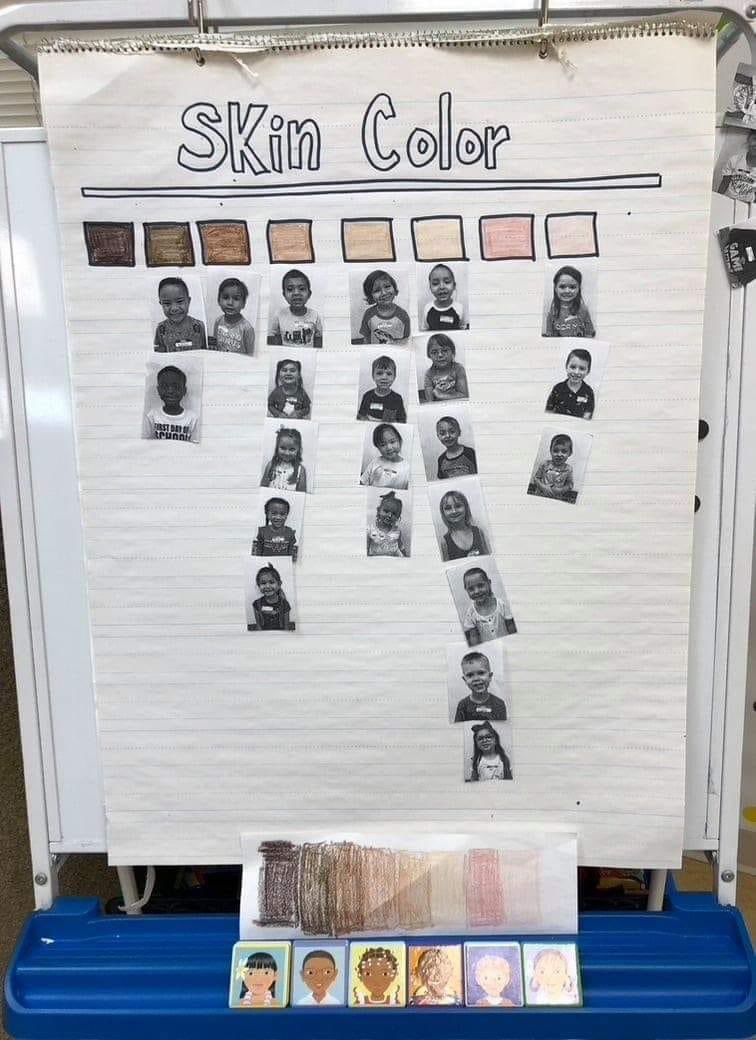 SKin Color
FIRST DAY OF
SCHOOL
GAME